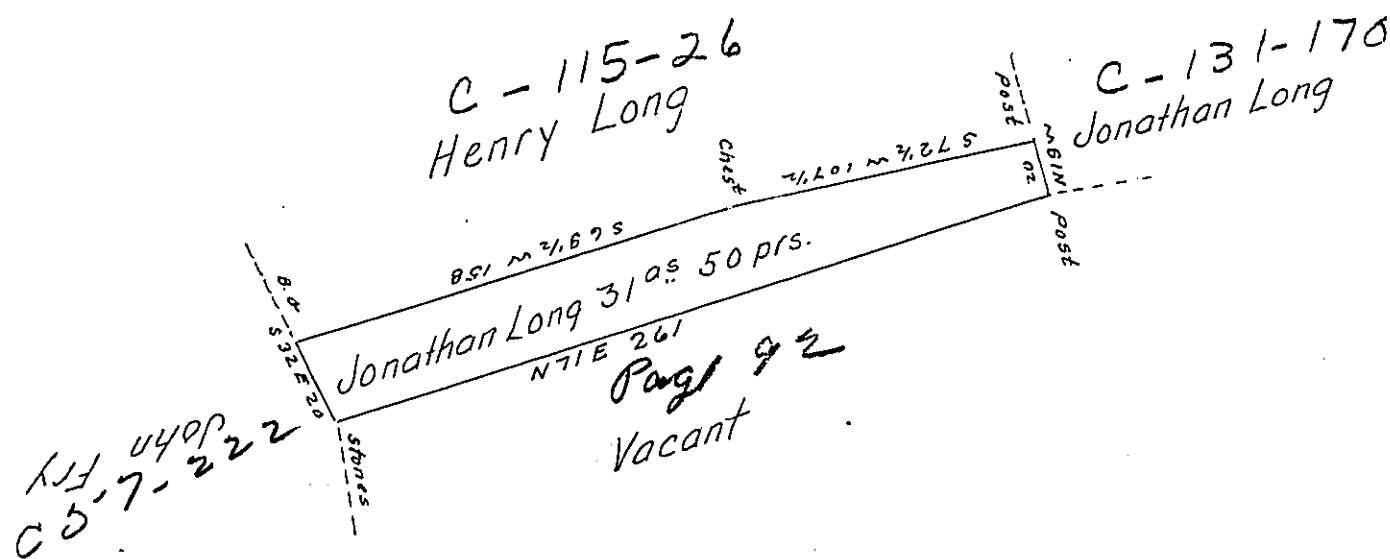 C - 115-26
Henry Long
C - 131-170
Jonathan Long
Post
Chest
S 72½ W 107½
N19W
20
Post
S 69½ W 158
B.O
S 32 E 20
Jonathan Long 31 as 50 prs.
N 71 E 261
Page 92
Vacant
Stones
John Fry
C 57-222